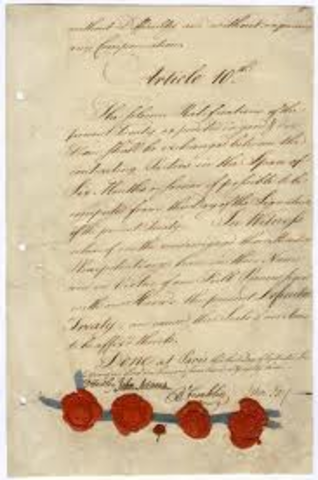 without difficulty and without requiring
any Compensation.
Article 10th.
The solemn Ratifications of the
present Treaty expedited in good & due
Form shall be exchanged between the
contracting Parties in the Space of
Six Months or sooner if possible to be
computed from the Day of the Signature
of the present Treaty. In Witness
whereof we the undersigned their Ministers
Plenipotentiary have in their Name
and in Virtue of our Full Powers signed
with our Hands the present Definitive
Treaty, and caused the Seals of our Arms
to be affix'd thereto.
Done at Paris, this third Day of September
D Hartley John Adams B Franklin John Jay